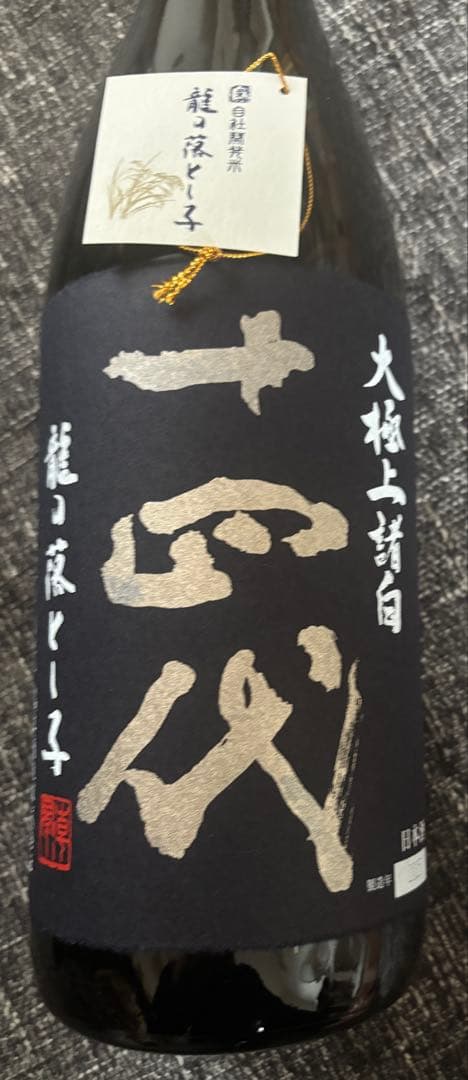 自社開発米
龍の落とし子
大極上諸白
十四代
龍の落とし子
日本酒
製造年